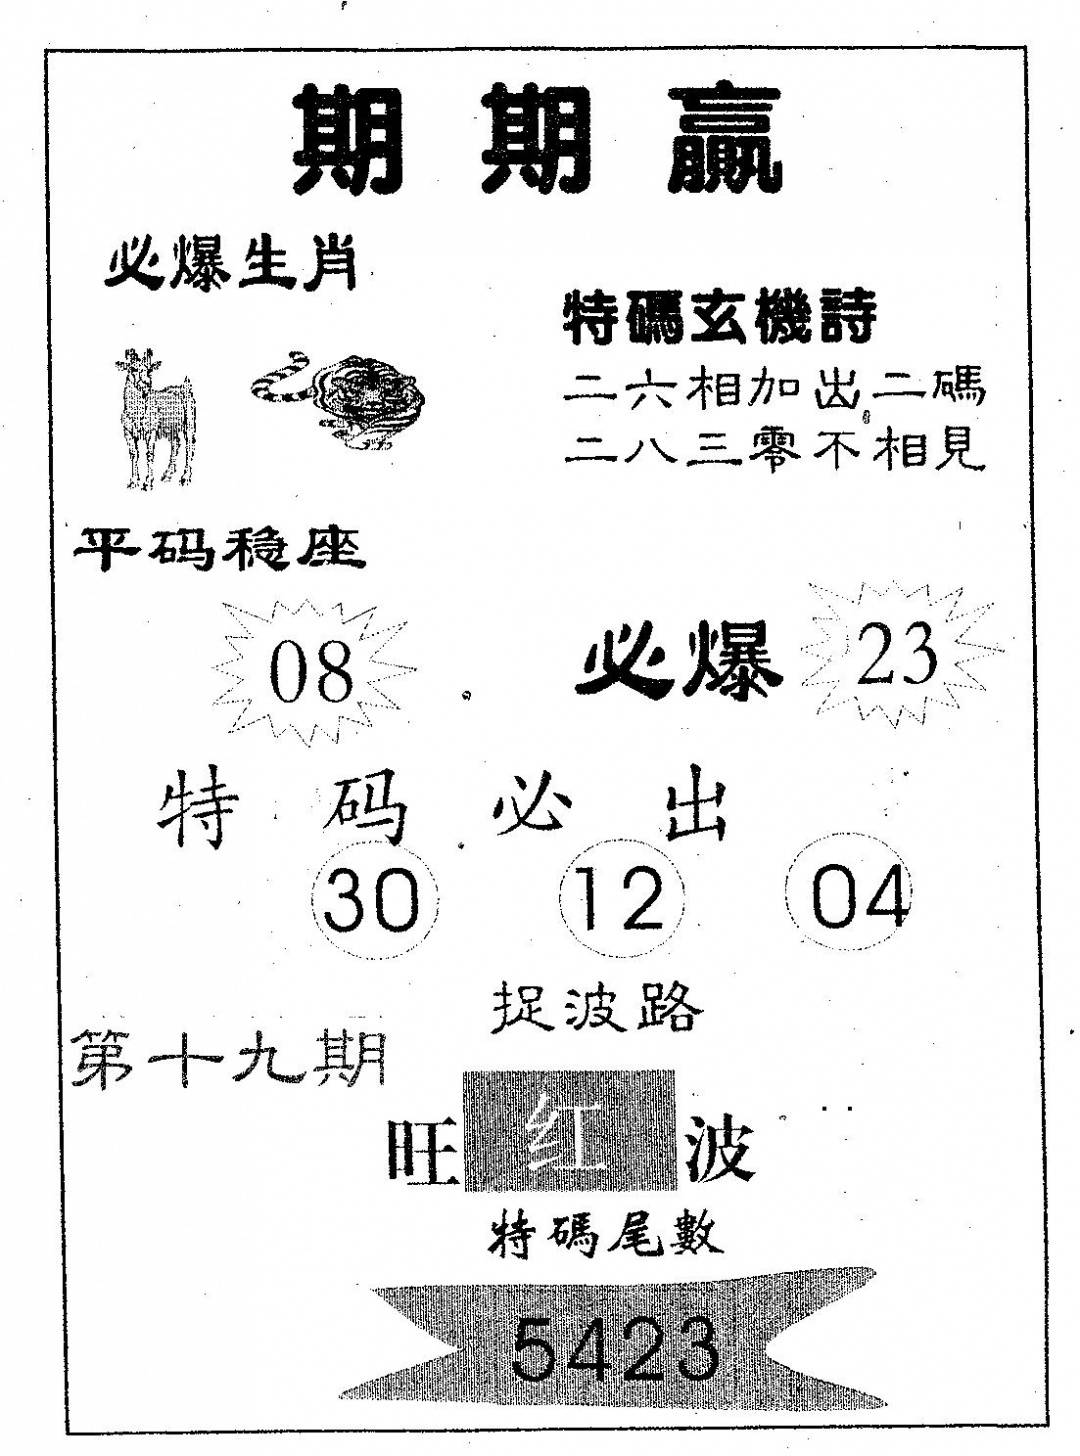 期期贏
必爆生肖
特碼玄機詩
二六相加出二碼
二八三零不相見
平码稳座
08
必爆 23
特码必出
30 12 04
捉波路
第十九期
旺红波
特碼尾數
5423